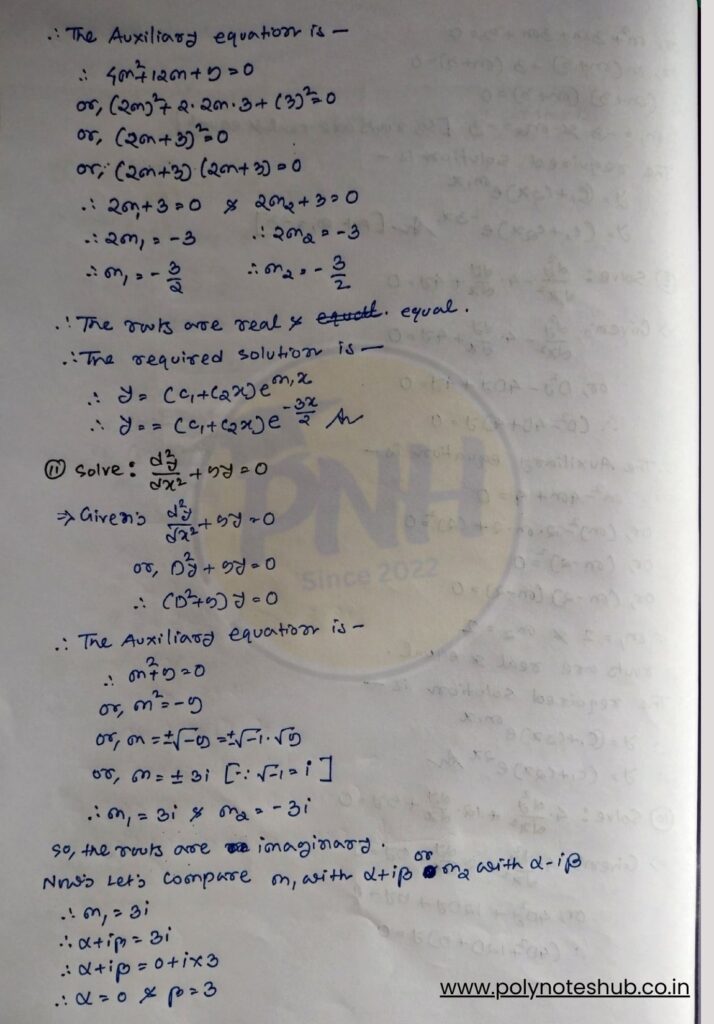 ∴ The Auxiliary equation is —
∴ 4m²+12m+9=0
or, (2m)²+2·2m·3+(3)²=0
or, (2m+3)²=0
or, (2m+3) (2m+3)=0
∴ 2m₁+3=0 & 2m₂+3=0
∴ 2m₁=-3 ∴ 2m₂=-3
∴ m₁=-3/2 ∴ m₂=-3/2
∴ The roots are real & equal. equal.
∴ The required solution is —
∴ y=(c₁+c₂x)e^m₁x
∴ y==(c₁+c₂x)e^-3x/2 Ans
PNH
Since 2022
⑪ Solve: d²y/dx²+9y=0
⇒ Given: d²y/dx²+9y=0
or, D²y+9y=0
∴ (D²+9)y=0
∴ The Auxiliary equation is —
∴ m²+9=0
or, m²=-9
or, m=±√-9=±√-1·√9
or, m=±3i [∵ √-1=i]
∴ m₁=3i & m₂=-3i
So, the roots are imaginary.
Now: Let's compare m₁ with α+iβ or m₂ with α-iβ
∴ m₁=3i
∴ α+iβ=3i
∴ α+iβ=0+i×3
∴ α=0 & β=3
www.polynoteshub.co.in